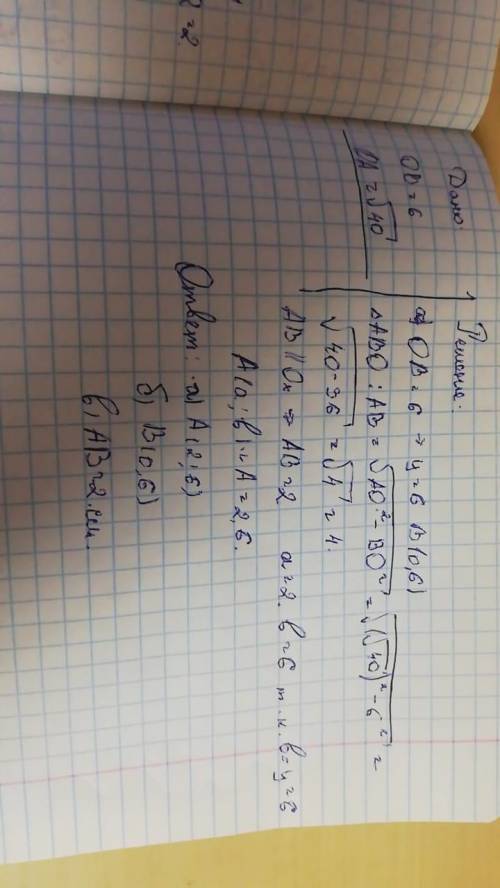 2=2.
Дано:
OB=6
OA=√40
Решение.
а) OB=6 → y=6 B(0,6)
△ABO: AB=√AO²-BO²=√(√40)²-6²=
√40-36=√4=4.
AB||Ox ⇒ AB=2 a=2. в=6 т.к. в=y=6
A(a;в) A=2,6.
Ответ: а) A(2;6)
б) B(0,6)
в) AB=2 см.